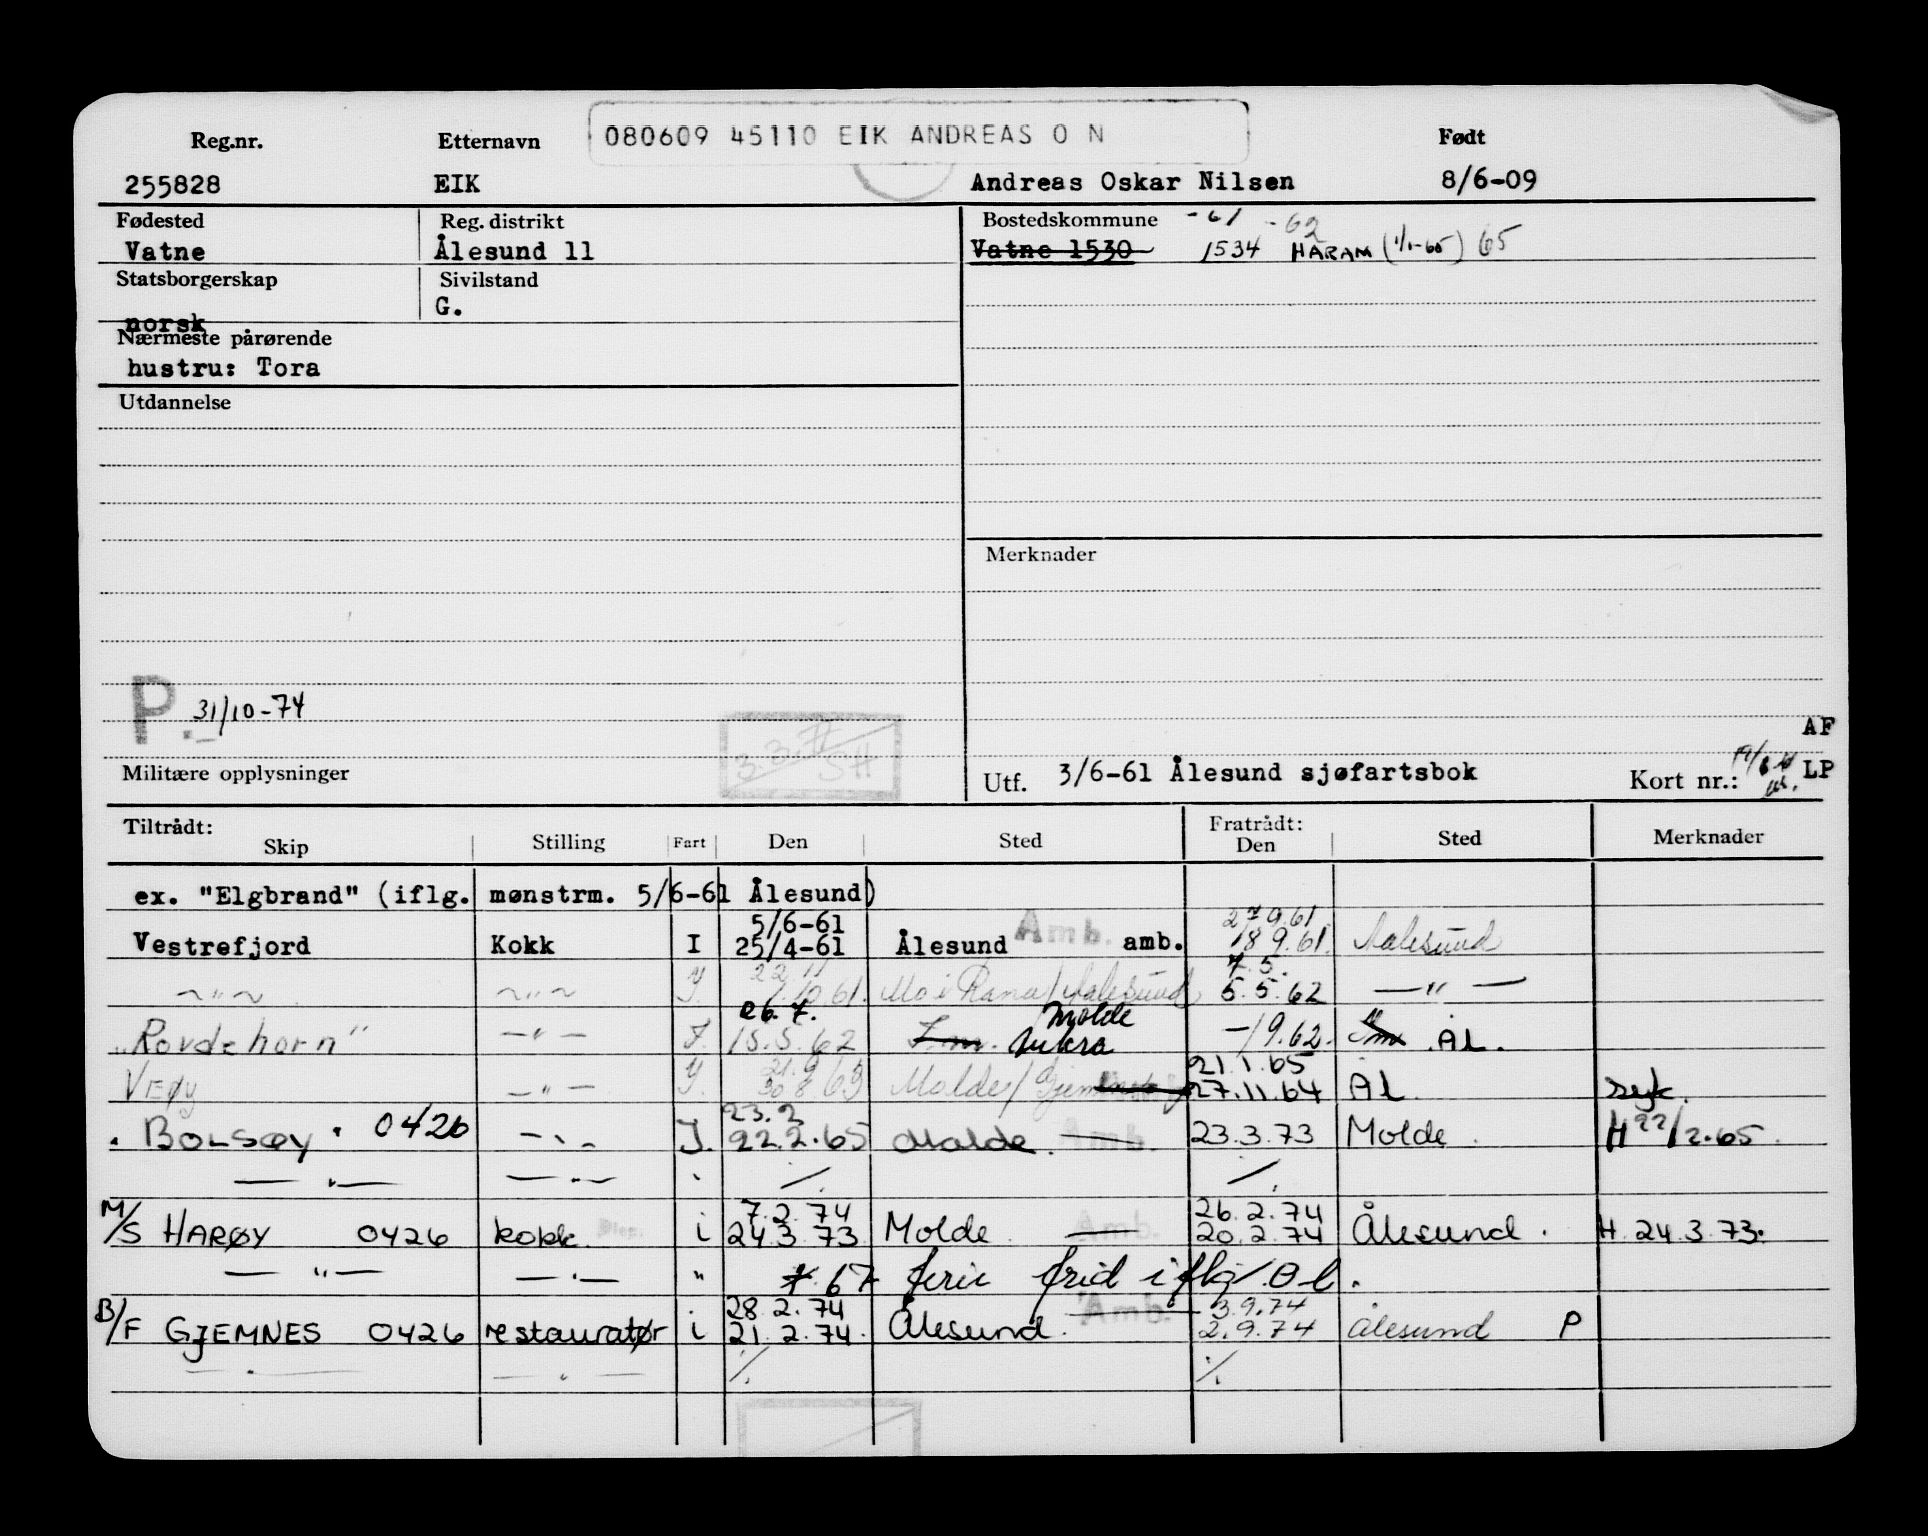 Reg.nr. Etternavn 080609 45110 EIK ANDREAS O N Født
255828 EIK Andreas Oskar Nilsen 8/6-09
Fødested Reg. distrikt Bostedskommune -61 -62
Vatne Ålesund 11 Vatne 1530 1534 HARAM (1/1-65) 65
Statsborgerskap Sivilstand
norsk G.
Nærmeste pårørende
hustru: Tora
Utdannelse
Merknader
P. 31/10-74
3.3.77
SH
AF
Militære opplysninger Utf. 3/6-61 Ålesund sjøfartsbok Kort nr.: LP
Tiltrådt: Fratrådt:
Skip Stilling Fart Den Sted Den Sted Merknader
ex. "Elgbrand" (iflg. mønstrm. 5/6-61 Ålesund)
5/6-61 Amb. 27.9.61
Vestrefjord Kokk I 25/4-61 Ålesund amb. 18 9.61. Aalesund
22 11 7.5.
—"— —"— I. 1.10 61. Mo i Rana/Aalesund 5.5.62 —"—
26.7. Molde
"Rovdehorn" —"— I. 15.5.62 Aukra -/9.62. ÅL.
21.9 21.1.65
VEØY —"— I. 30.8.63 Molde/ 27.11.64 ÅL syk.
23.2
"BOLSØY" 0426 —"— I. 22.2.65 Molde. Amb. 23.3.73 Molde H 22/2.65.
—"— —"— " ⁒ ⁒
7.2.74 26.2.74
M/S HARØY 0426 kokk. i 24.3.73 Molde Amb. 20.2.74 Ålesund. H. 24.3.73.
—"— —"— " 67 ferie frid iflg.
28.2.74 Amb. 3.9.74
B/F GJEMNES 0426 restauratør i 21.2.74. Ålesund. 2.9.74 Ålesund P
—"— —"— ⁒ ⁒